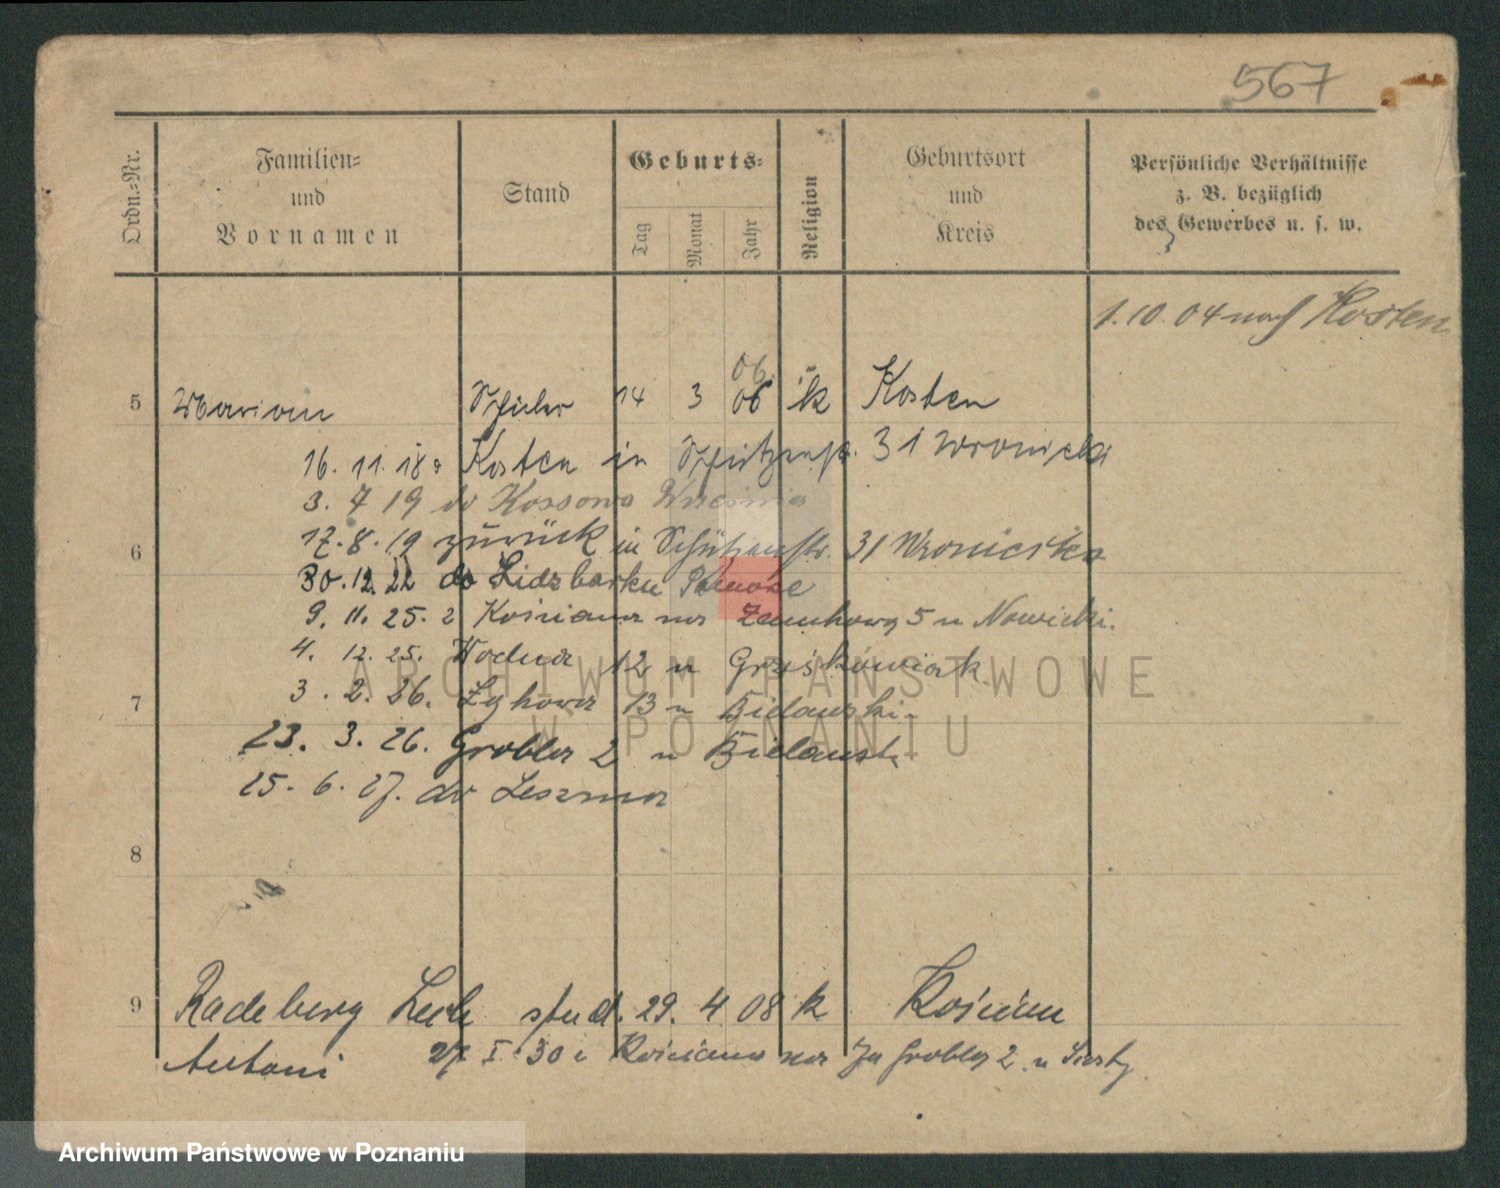 567
Ordn.-Nr.
Familien- und Vornamen
Stand
Geburts-
Tag
Monat
Jahr
Religion
Geburtsort und Kreis
Persönliche Verhältnisse z. B. bezüglich des Gewerbes u. s. w.
1.10.04 nach Kosten
06.
5 Marian Schüler 14 3 06 k Kosten
16. 11. 18 Kosten in Schützenstr. 31 Wronicki
3. 7 19 do Kossowo Września
6
17. 8. 19 zurück in Schützenstr. 31 Wronicka
30. 12. 22 do Lidzbarku Pomorze
9. 11. 25. z Kościana na 5 u Nowicki.
4. 12. 25. Wodna 12 u Grześkowiak
7
3. 2. 26. 13 u Bielawski.
23. 3. 26. Grobla 2 u Bielawsk.
25. 6. 27. do Leszna
8
9 Radeberg Lech stud. 29. 4 08 k Kościan
Antoni 27 I 30 z Kościana na Grobla 2 u
ARCHIWUM PAŃSTWOWE
W POZNANIU
Archiwum Państwowe w Poznaniu